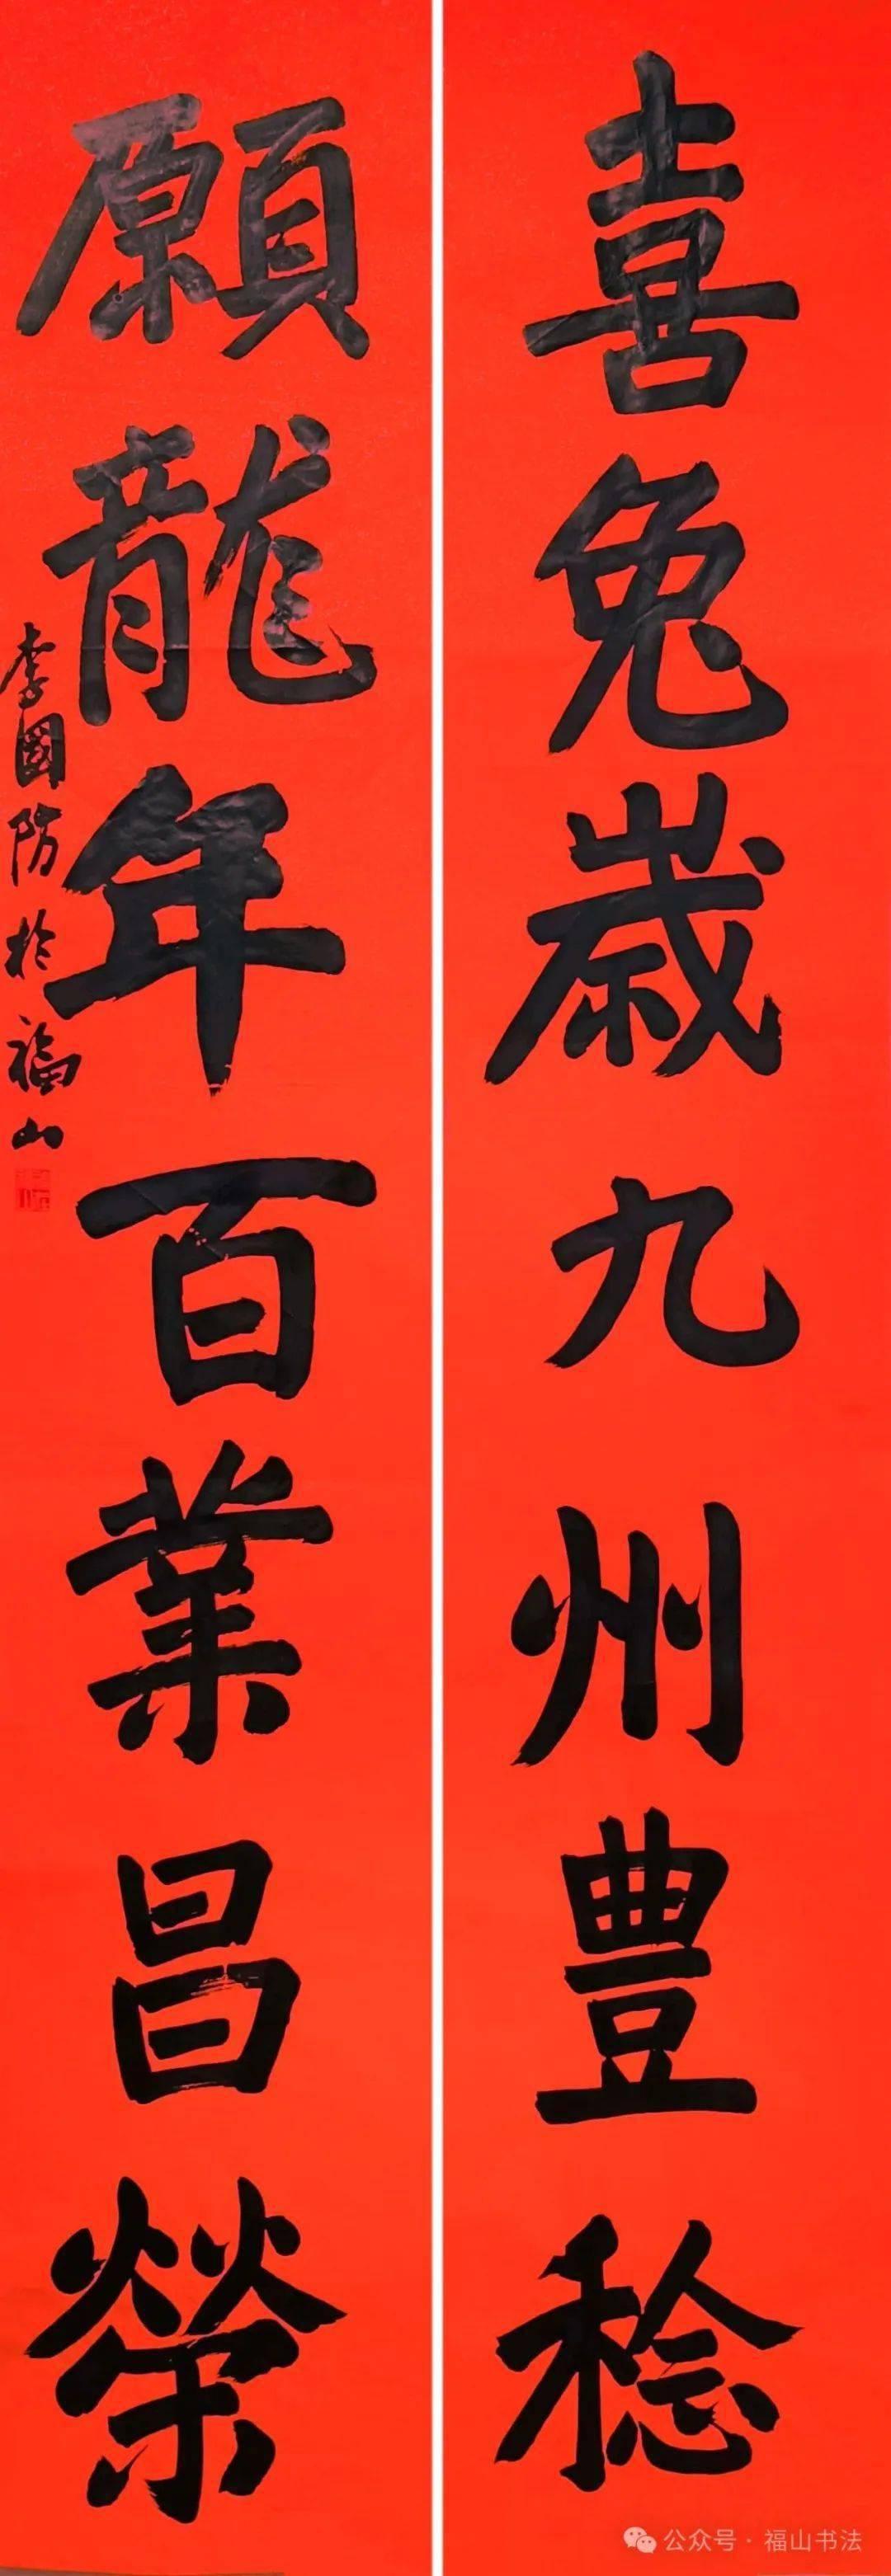 喜兔歲九州豊稔
願龍年百業昌榮
李國防於福山
公众号·福山书法